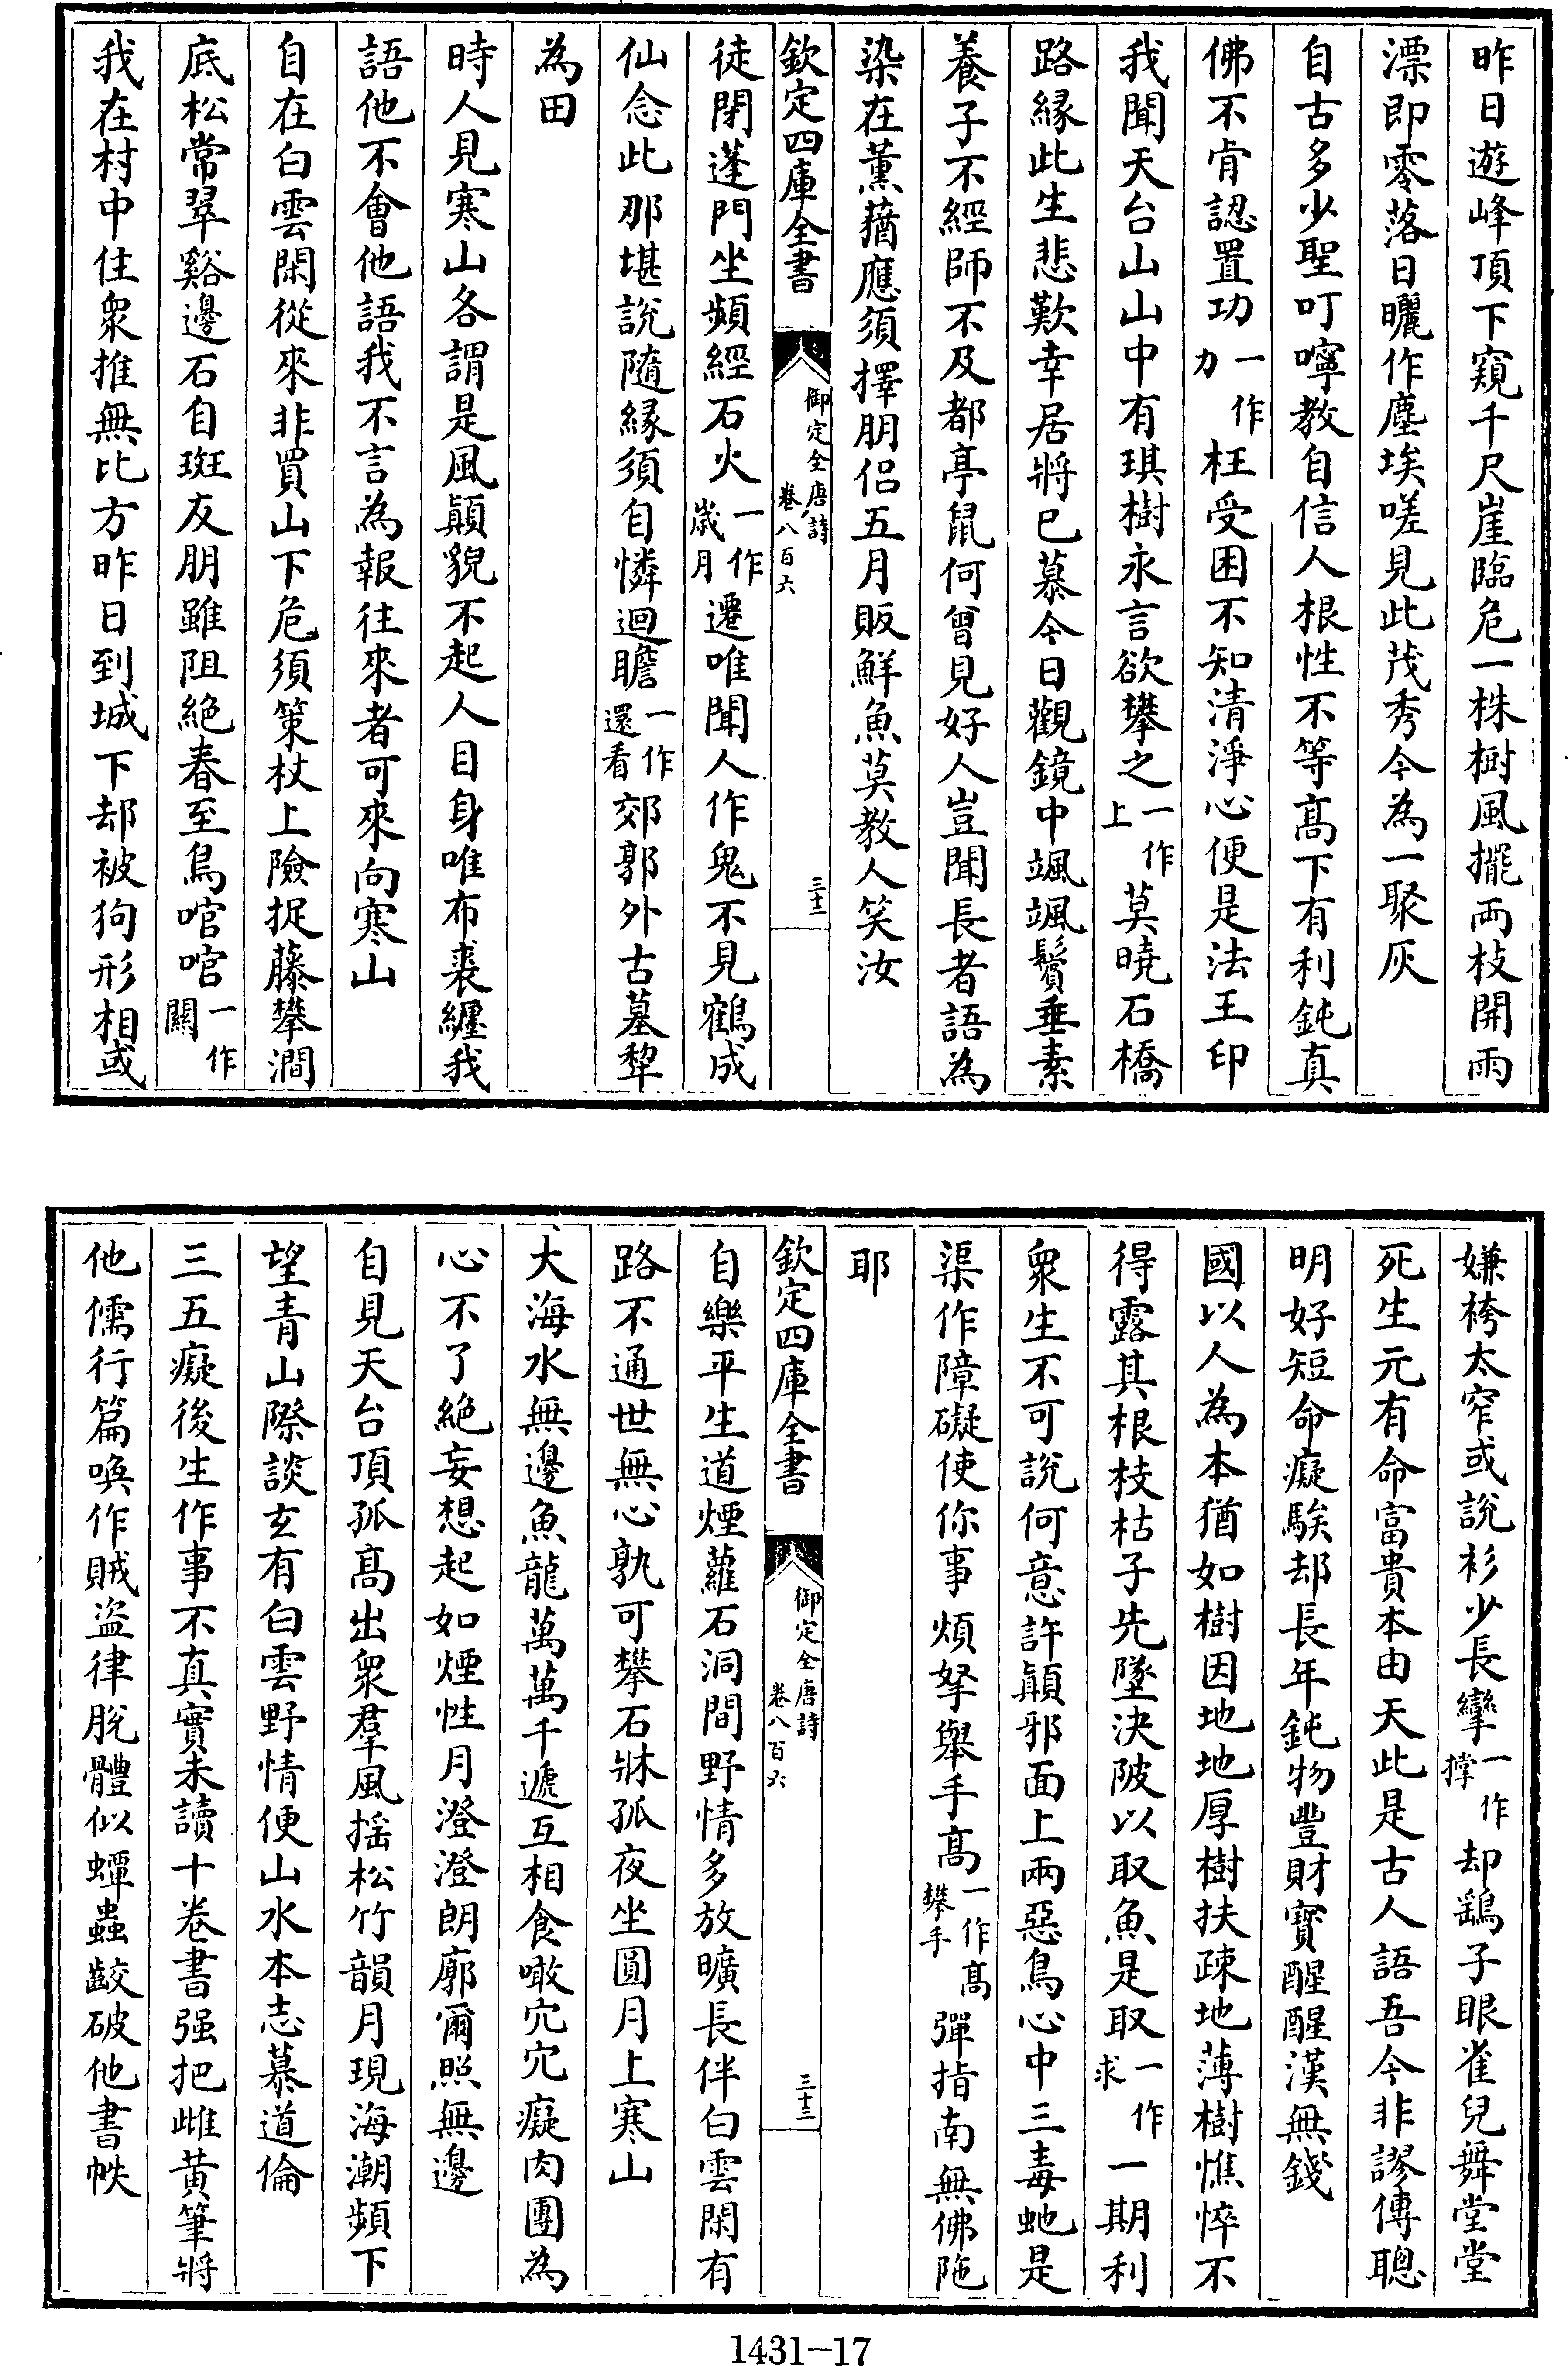 昨日遊峰頂下窺千尺崖臨危一株樹風擺兩枝開雨
漂即零落日曬作塵埃嗟見此茂秀今為一聚灰
自古多少聖叮嚀教自信人根性不等高下有利鈍真
佛不肯認置功一作力枉受困不知清淨心便是法王印
我聞天台山山中有琪樹永言欲攀之一作上莫曉石橋
路緣此生悲歎幸居將已慕今日觀鏡中颯颯鬢垂素
養子不經師不及都亭鼠何曾見好人豈聞長者語為
染在薰蕕應須擇朋侶五月販鮮魚莫教人笑汝
欽定四庫全書 御定全唐詩 卷八百六 三十二
徒閉蓬門坐頻經石火一作歲月遷唯聞人作鬼不見鶴成
仙念此那堪說隨緣須自憐迴瞻一作還看郊郭外古墓犂
為田
時人見寒山各謂是風顛貌不起人目身唯布裘纏我
語他不會他語我不言為報往來者可來向寒山
自在白雲閑從來非買山下危須策杖上險捉藤攀澗
底松常翠谿邊石自斑友朋雖阻絕春至鳥喧喧一作關
我在村中住衆推無比方昨日到城下却被狗形相或
嫌袴太窄或說衫少長攣一作撑却鷂子眼雀兒舞堂堂
死生元有命富貴本由天此是古人語吾今非謬傳聰
明好短命癡騃却長年鈍物豐財寳醒醒漢無錢
國以人為本猶如樹因地地厚樹扶疎地薄樹憔悴不
得露其根枝枯子先墜決陂以取魚是取一作求一期利
衆生不可說何意許顛邪面上兩惡鳥心中三毒虵是
渠作障礙使你事煩拏舉手高一作高攀手彈指南無佛陁
耶
欽定四庫全書 御定全唐詩 卷八百六 三十三
自樂平生道煙蘿石洞間野情多放曠長伴白雲閑有
路不通世無心孰可攀石牀孤夜坐圓月上寒山
大海水無邊魚龍萬萬千遞互相食噉冗冗癡肉團為
心不了絕妄想起如煙性月澄澄朗廓爾照無邊
自見天台頂孤高出衆羣風揺松竹韻月現海潮頻下
望青山際談玄有白雲野情便山水本志慕道倫
三五癡後生作事不真實未讀十卷書强把雌黄筆將
他儒行篇喚作賊盗律脫體似蟫蟲齩破他書帙
1431-17